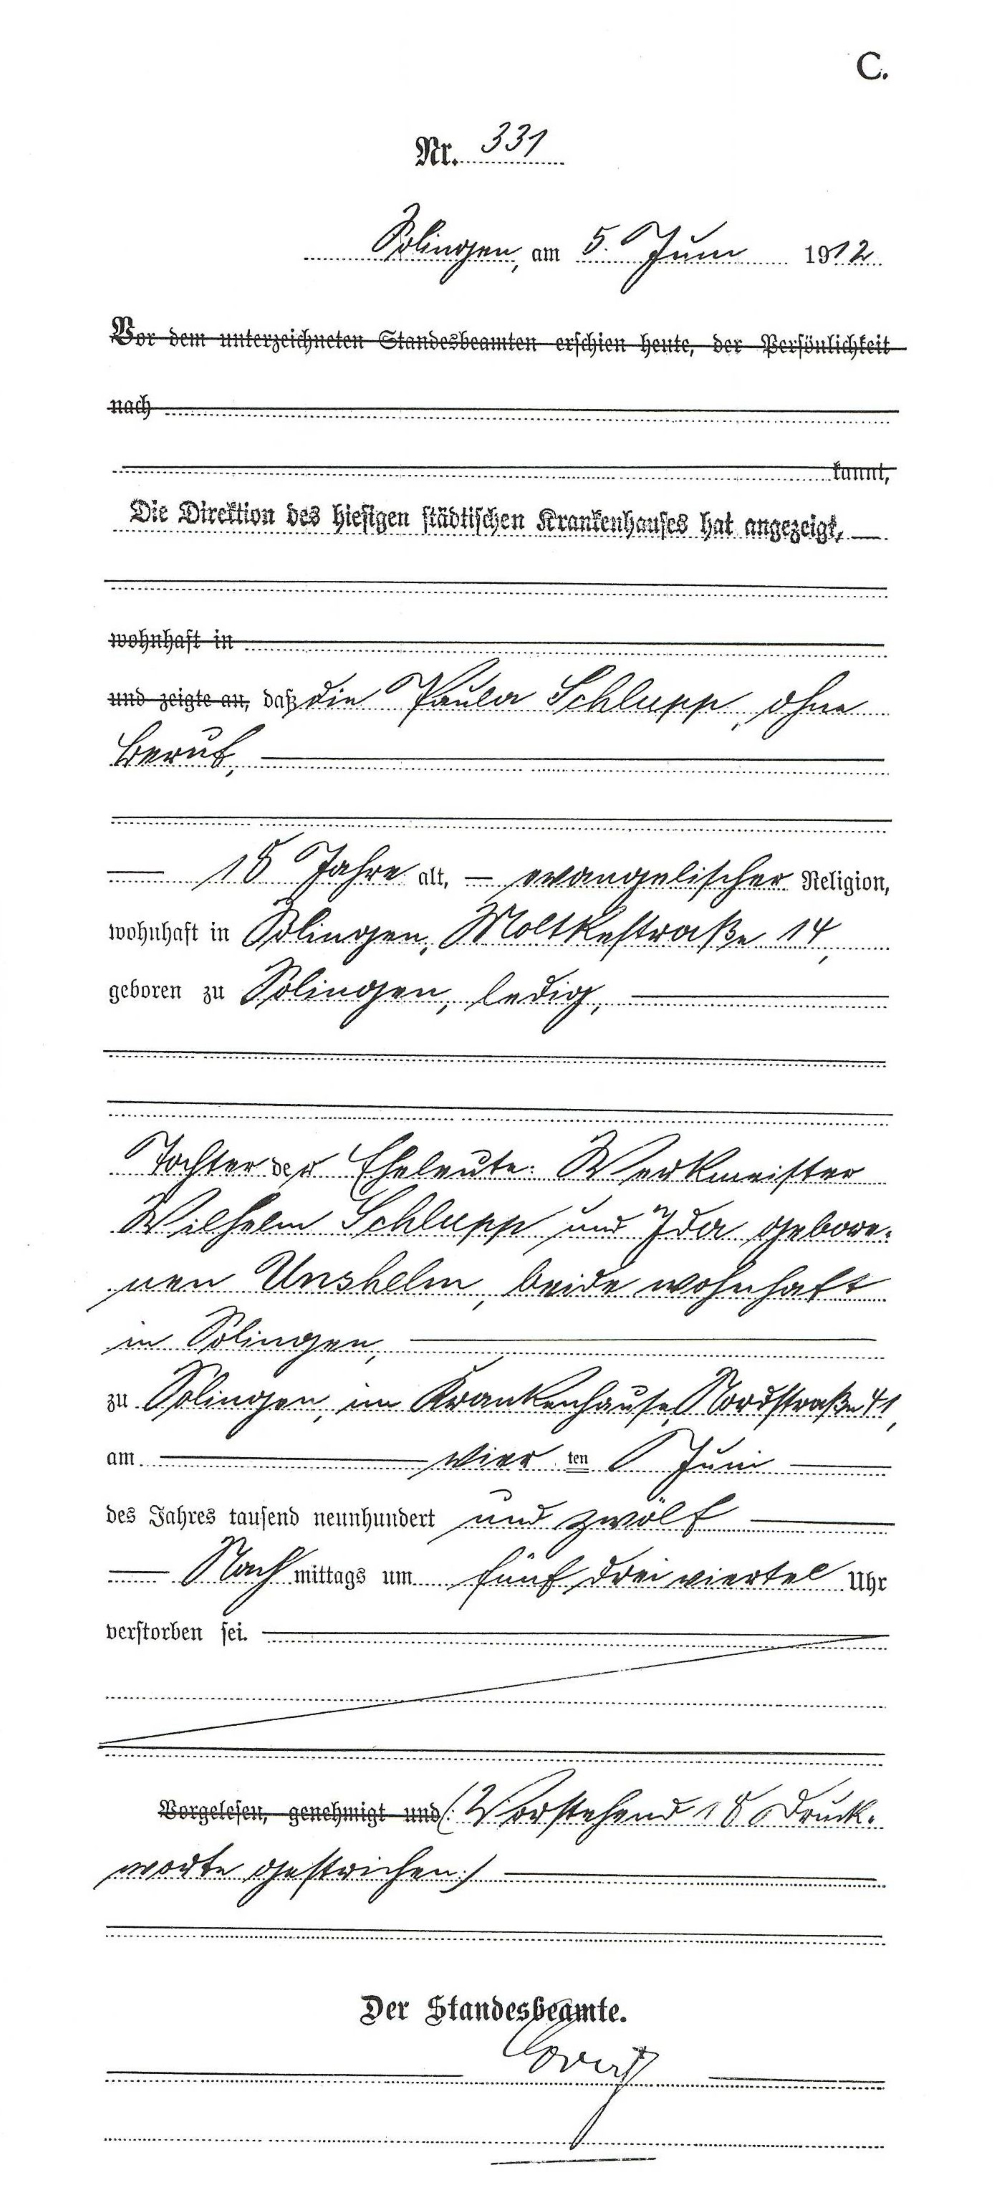 C.
Nr. 331
Solingen, am 5. Juni 1912
Vor dem unterzeichneten Standesbeamten erschien heute, der Persönlichkeit
nach
kannt,
Die Direktion des hiesigen städtischen Krankenhauses hat angezeigt,
wohnhaft in
und zeigte an, daß die Paula Schlupp, ohne
Beruf,
18 Jahre alt, evangelischer Religion,
wohnhaft in Solingen, Moltkestraße 14,
geboren zu Solingen, ledig,
Tochter der Eheleute: Werkmeister
Wilhelm Schlupp und Ida gebore-
nen Unshelm, beide wohnhaft
in Solingen,
zu Solingen, im Krankenhause, Nordstraße 41,
am vier ten Juni
des Jahres tausend neunhundert und zwölf
Nach mittags um fünf drei viertel Uhr
verstorben sei.
Vorgelesen, genehmigt und (: Vorstehend 18 Druck-
worte gestrichen :)
Der Standesbeamte.